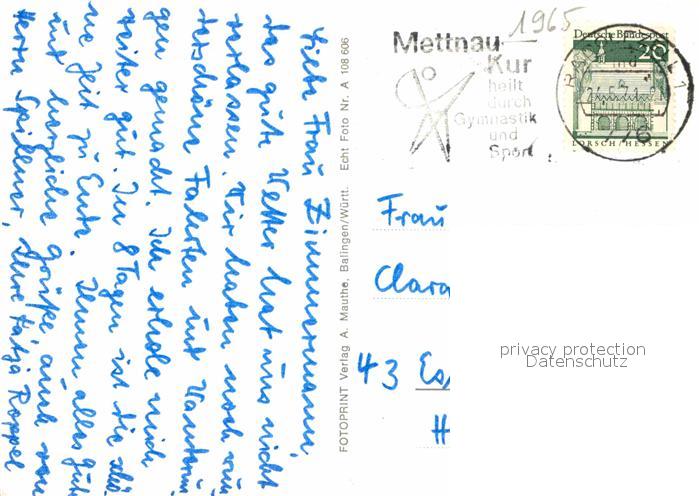 Liebe Frau Zimmermann,
das gute Wetter hat uns nicht
verlassen. Wir haben noch wun-
derschöne Fahrten und Wanderun-
gen gemacht. Ich erhole mich
weiter gut. In 8 Tagen ist die schö-
ne Zeit zu Ende. Ihnen alles Gute
und herzliche Grüße auch von
Herrn Spillner, Ihre Katja Roppel
FOTOPRINT Verlag A. Mauthe, Balingen/Württ. Echt Foto Nr. A 108 606
1965
Mettnau
Kur
heilt
durch
Gymnastik
und
Sport
Deutsche Bundespost
20
LORSCH/HESSEN
Frau
Clara
43 Es
H
privacy protection
Datenschutz